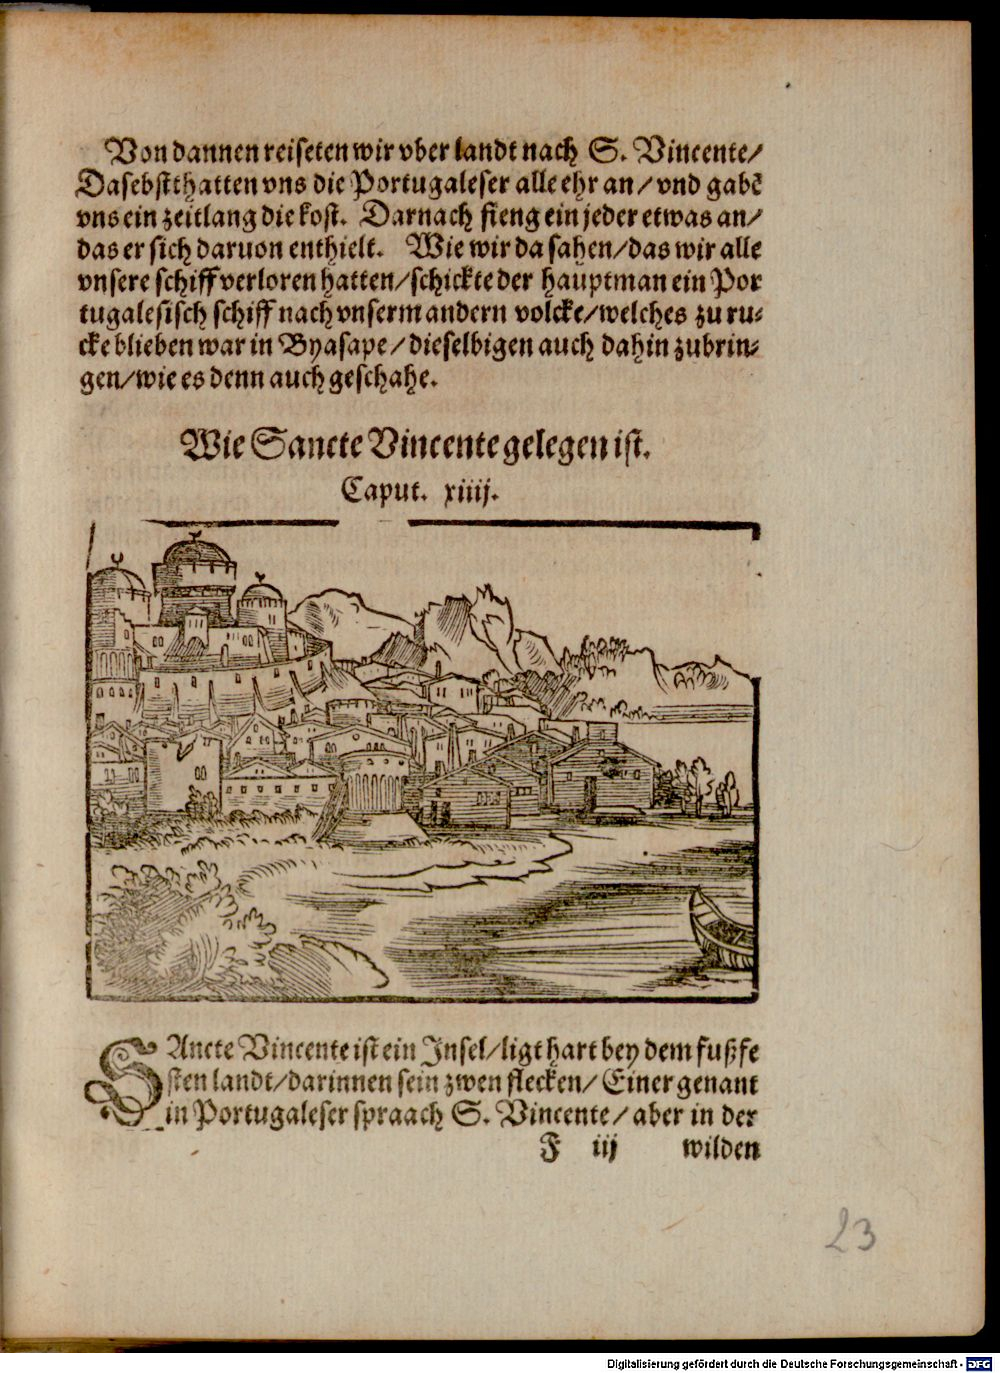 Von dannen reiseten wir vber landt nach S. Vincente/
Dasebst thatten vns die Portugaleser alle ehr an/ vnd gabē
vns ein zeitlang die kost. Darnach fieng ein jeder etwas an/
das er sich daruon enthielt. Wie wir da sahen/ das wir alle
vnsere schiff verloren hatten/ schickte der hauptman ein Por
tugalesisch schiff nach vnserm andern volcke/ welches zu ru-
cke blieben war in Byasape/ dieselbigen auch dahin zubrin-
gen/ wie es denn auch geschahe.
Wie Sancte Vincente gelegen ist.
Caput. xiiij.
SAncte Vincente ist ein Insel/ ligt hart bey dem fußfe
sten landt/ darinnen sein zwen flecken/ Einer genant
in Portugaleser spraach S. Vincente/ aber in der
F iij wilden
23
Digitalisierung gefördert durch die Deutsche Forschungsgemeinschaft - DFG